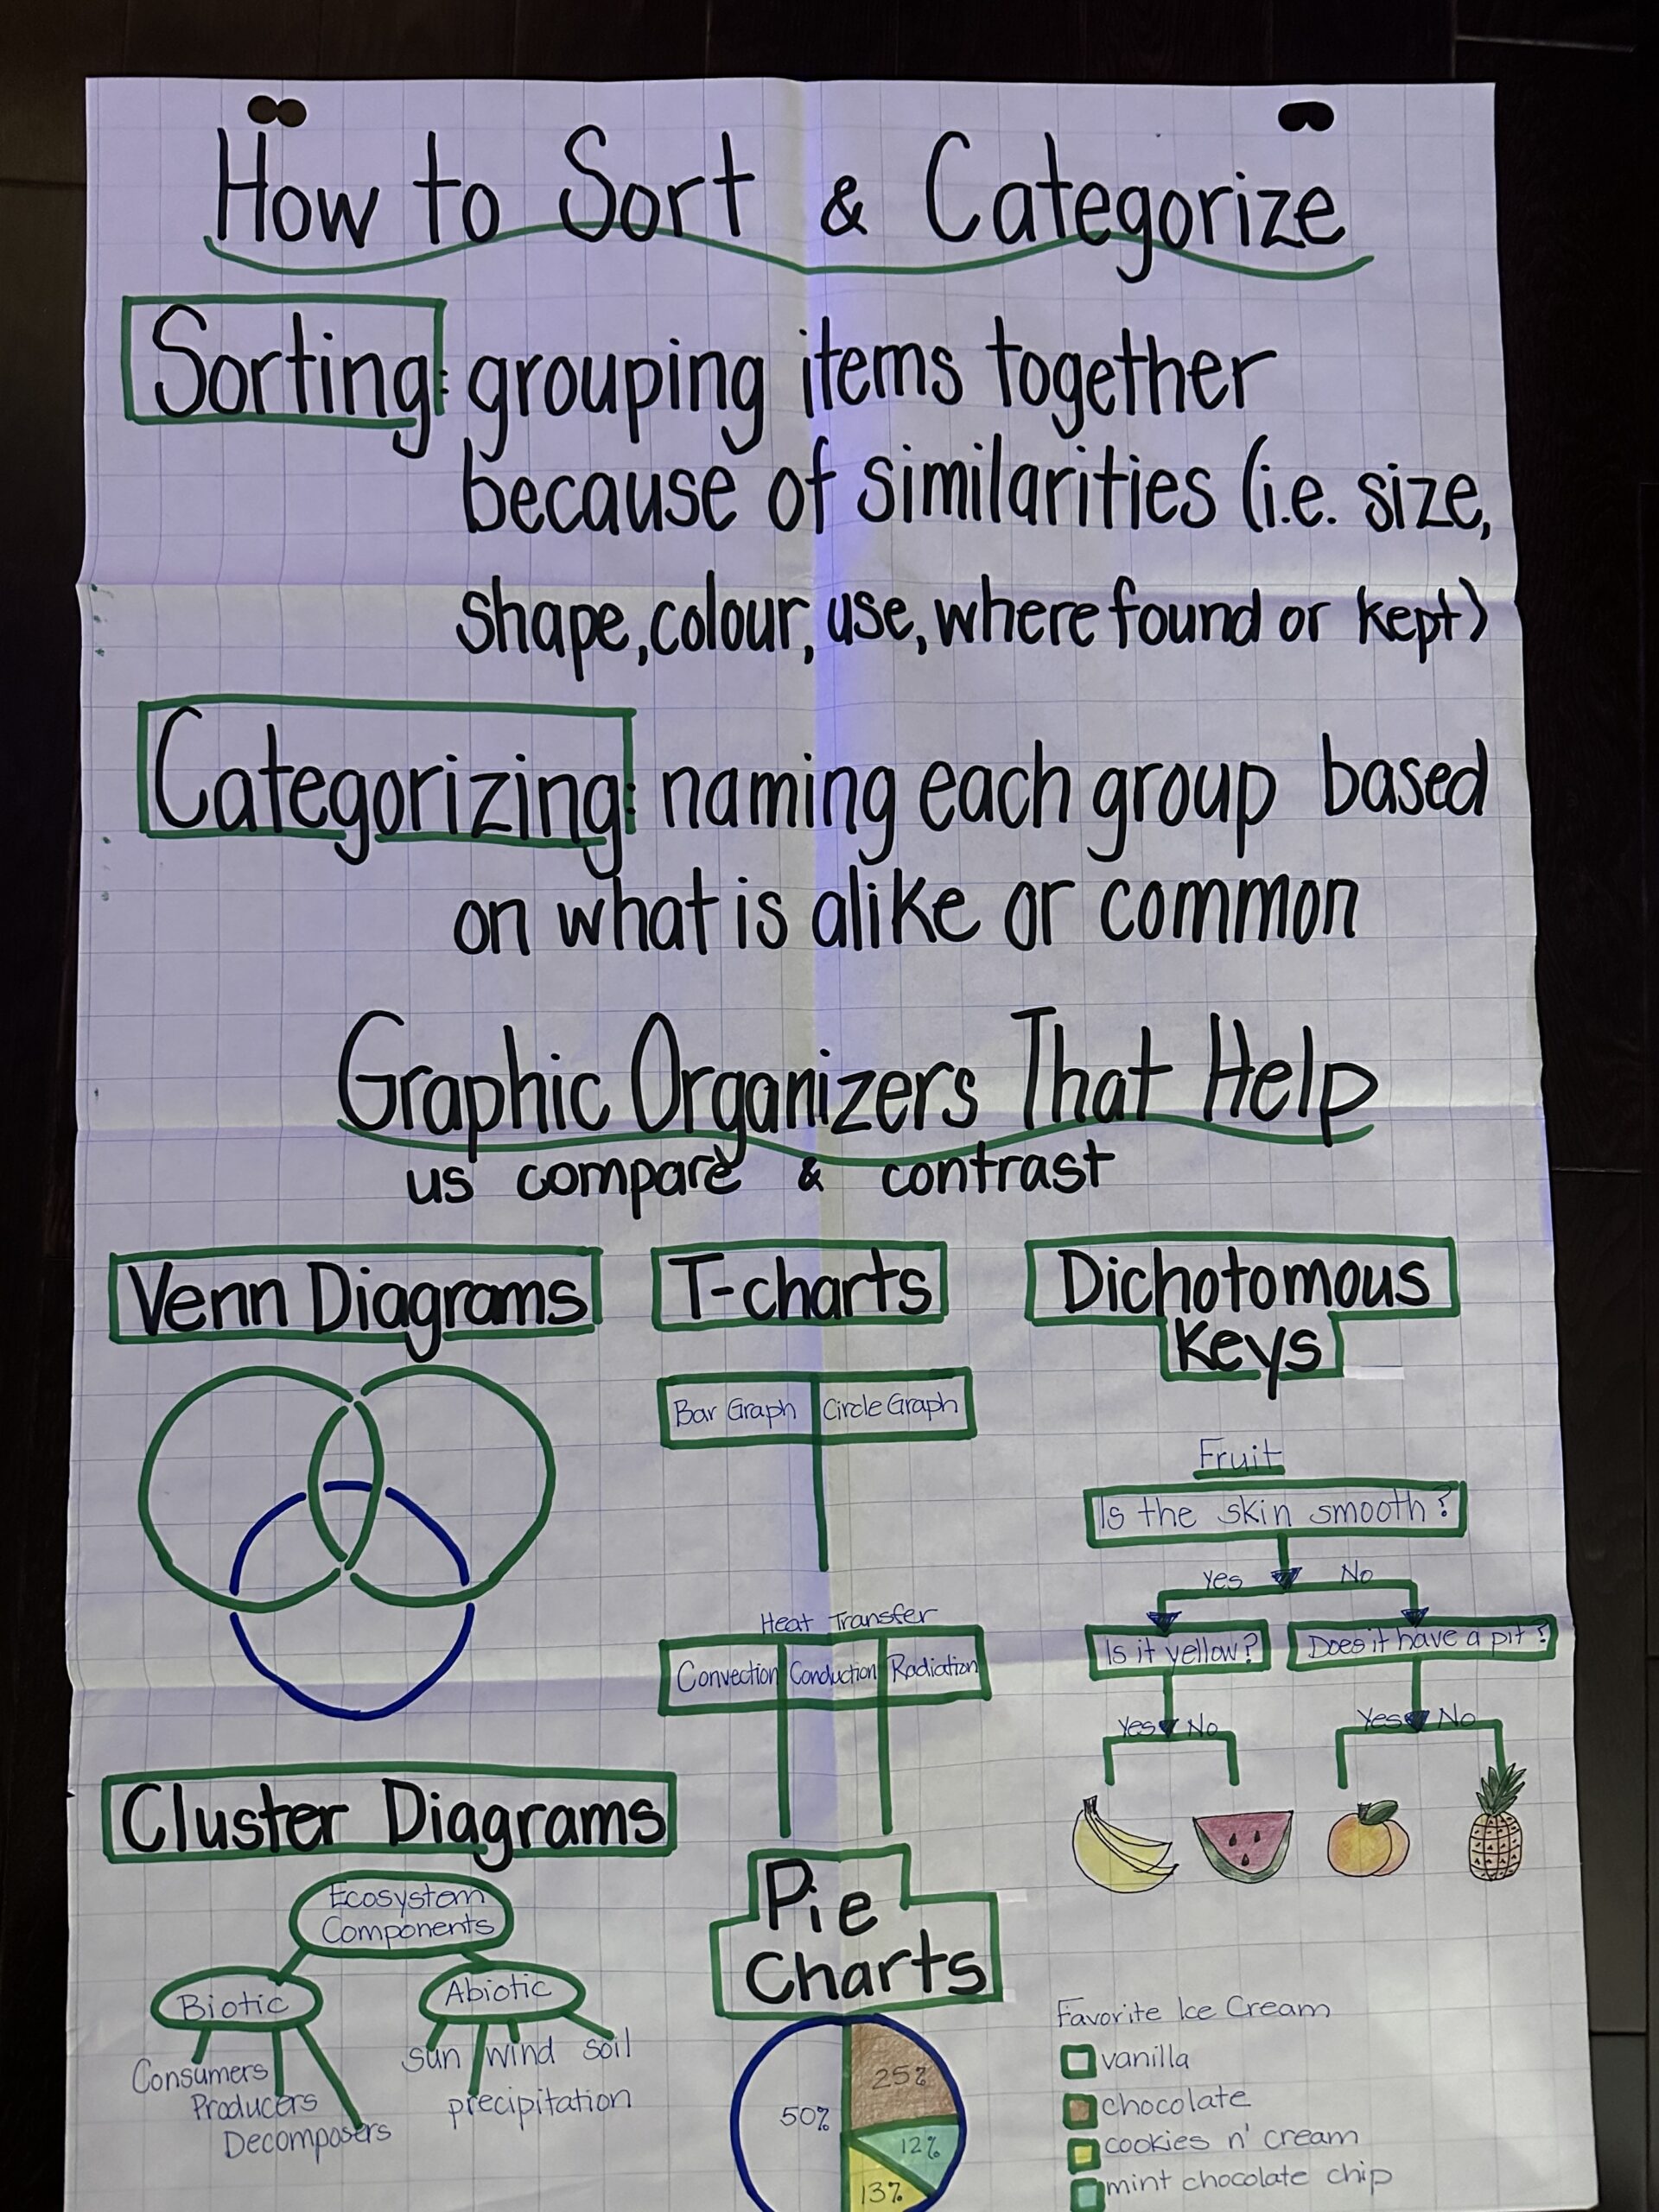 How to Sort & Categorize
Sorting: grouping items together
because of similarities (i.e. size,
shape, colour, use, where found or kept)
Categorizing: naming each group based
on what is alike or common
Graphic Organizers That Help
us compare & contrast
Venn Diagrams
T-charts
Bar Graph
Circle Graph
Heat Transfer
Convection
Conduction
Radiation
Dichotomous
Keys
Fruit
Is the skin smooth?
Yes
No
Is it yellow?
Does it have a pit?
Yes
No
Yes
No
Cluster Diagrams
Ecosystem
Components
Biotic
Abiotic
Consumers
Producers
Decomposers
sun
wind
soil
precipitation
Pie
Charts
50%
25%
12%
13%
Favorite Ice Cream
vanilla
chocolate
cookies n' cream
mint chocolate chip